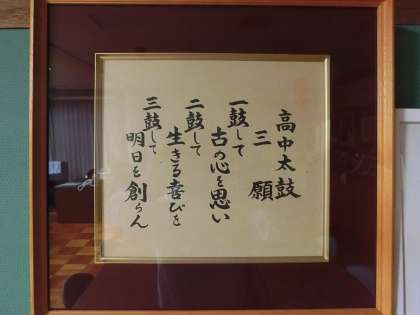 高中太鼓
三願
一鼓して
古の心を思い
二鼓して
生きる喜びを
三鼓して
明日を創らん